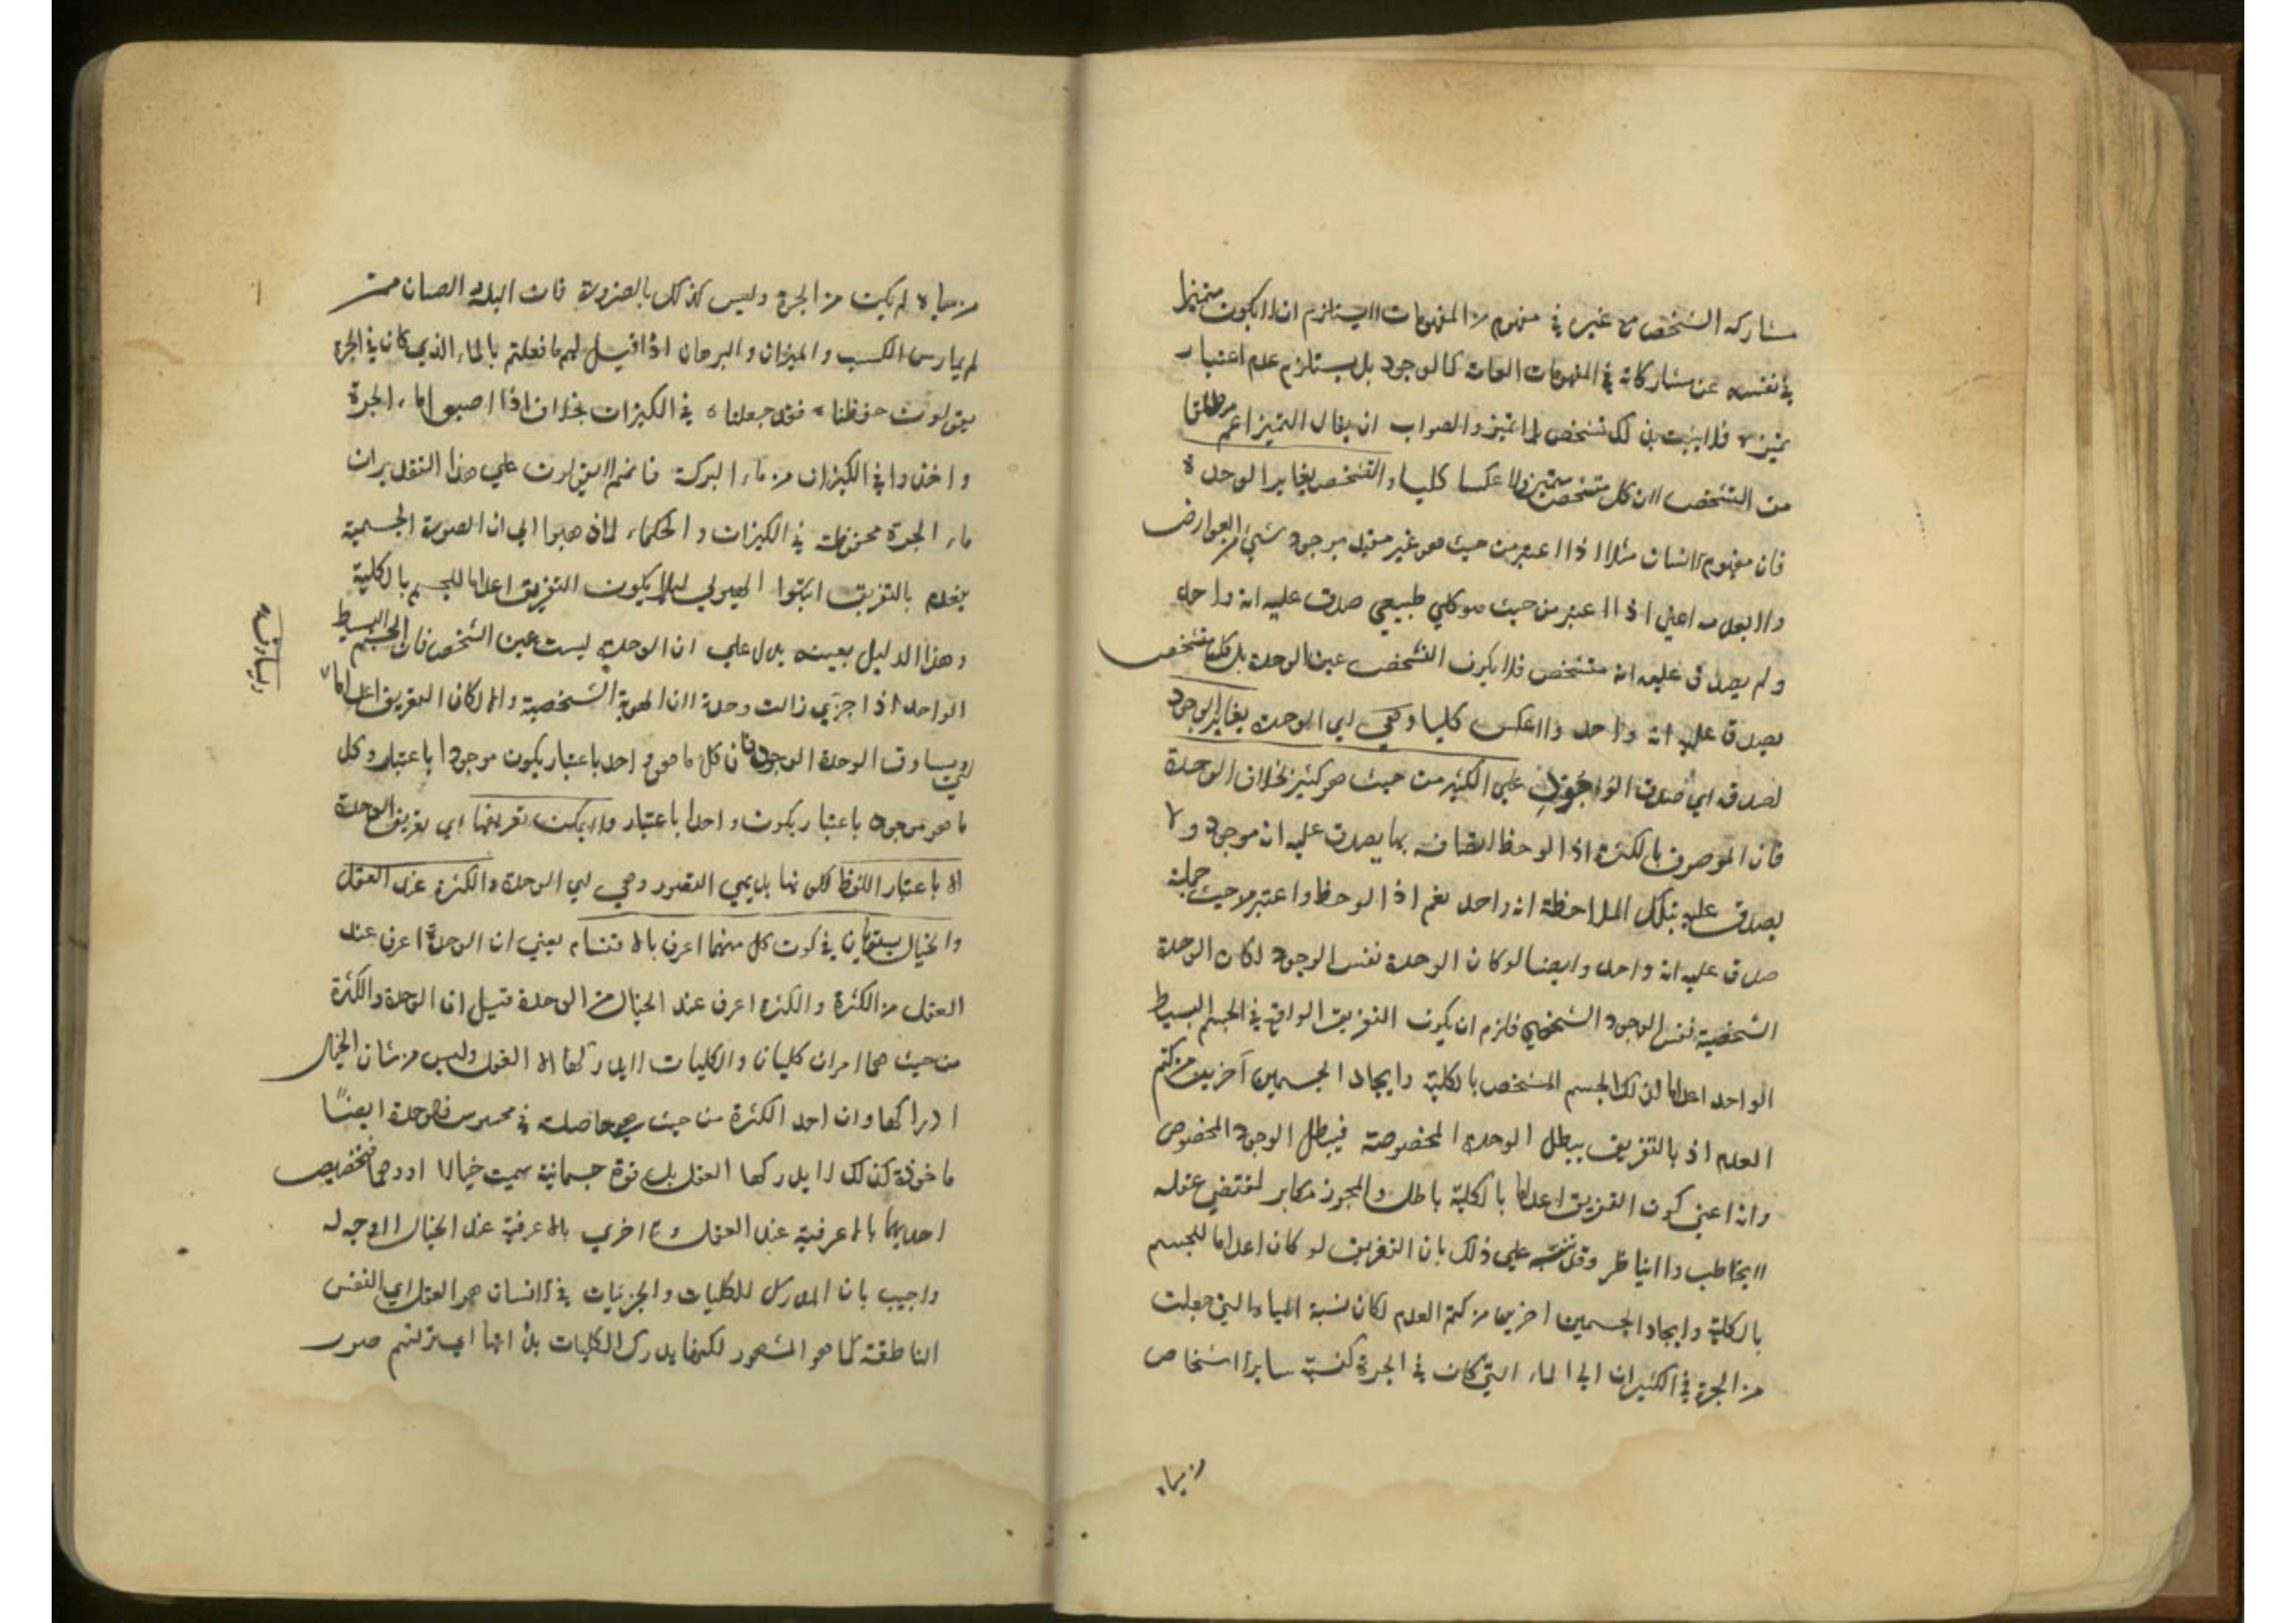 مشاركه الشخص مع غيره في مفهوم من المفهومات لا يستلزم ان لا يكون متميزا
في نفسه عن مشاركاته في المفهومات العامة كالوجود بل يستلزم عدم اعتبار
تميزه فلا يثبت بذلك تشخص بلا تميز والصواب ان يقال التميز اعم مطلقا
من التشخص لان كل متشخص متميز ولا عكسا كليا والتشخص يغاير الوحدة
فان مفهوم الانسان مثلا اذا اعتبر من حيث هو غير مقيد بوجود شيء من العوارض
ولا بعدمه اعني اذا اعتبر من حيث هو كلي طبيعي صدق عليه انه واحد
ولم يصدق عليه انه متشخص فلا يكون التشخص عين الوحدة بل كل متشخص
يصدق عليه انه واحد ولا عكس كليا وهي اي الوحدة يغاير الوجود
لصدقه اي صدق الوجود على الكثير من حيث هو كثير بخلاف الوحدة
فان الموصوف بالكثرة اذا لوحظ اتصافه بها يصدق عليه انه موجود ولا
يصدق عليه بتلك الملاحظة انه واحد نعم اذا لوحظ واعتبر من حيث جملته
صدق عليه انه واحد وايضا لو كان الوحدة نفس الوجود لكان الوحدة
الشخصية نفس الوجود الشخصي فلزم ان يكون التفريق الواقع في الجسم البسيط
الواحد اعداما لذلك الجسم المشخص بالكلية وايجادا لجسمين آخرين من كتم
العدم اذ بالتفريق يبطل الوحدة المخصوصة فيبطل الوجود المخصوص
وانه اعني كون التفريق اعداما بالكلية باطل والمجوز مكابر لمقتضي عقله
لا يخاطب ولا يناظر وقد نبه على ذلك بان التفريق لو كان اعداما للجسم
بالكلية وايجادا لجسمين اخرين من كتم العدم لكان نسبة المياه التي جعلت
من الجرة في الكيزان الى الماء التي كان في الجرة كنسبة ساير اشخاص
من مياه
من مياه لم يكن من الجرة وليس كذلك بالضرورة فان البله والصبيان ممن
لم يمارس الكسب والميزان والبرهان اذا قيل لهم ما فعلتم بالماء الذي كان في الجرة
يقولون حفظناه فقد جعلناه في الكيزان بخلاف اذا اصبوا ماء الجرة
واخذوا في الكيزان من ماء البركة فانهم لا يقولون على هذا التقدير ان
ماء الجرة محفوظة في الكيزان والحكماء لما ذهبوا الى ان الصورة الجسمية
ينعدم بالتفريق اثبتوا الهيولي لئلا يكون التفريق اعداما للجسم بالكلية
وهذا الدليل بعينه يدل على ان الوحدة ليست عين الشخص فان الجسم البسيط
الواحد اذا جزي زالت وحدته لان الهوية الشخصية والا لكان التفريق اعداما
ويساوق الوحدة الوجود فان كل ما هو واحد باعتبار يكون موجودا باعتبار وكل
ما هو موجود باعتبار يكون واحدا باعتبار ولا يمكن تعريفها اي تعريف الوحدة
الا باعتبار اللفظ لكونها بديهي التصور وهي اي الوحدة والكثرة عند العقل
والخيال يستويان في كون كل منهما اعرف بالاقتسام يعني ان الوحدة اعرف عند
العقل من الكثرة والكثرة اعرف عند الخيال من الوحدة قيل ان الوحدة والكثرة
من حيث هما امران كليان والكليات لا يدركها الا العقل وليس من شان الخيال
ادراكها وان احد الكثرة من حيث هي حاصلة في محسوس فالوحدة ايضا
ماخوذة كذلك لا يدركها العقل بل قوة جسمانية سميت خيالا او وهما فتخصيص
احديهما بالاعرفية عند العقل والاخرى بالاعرفية عند الخيال لا وجه له
واجيب بان المدرك للكليات والجزئيات في الانسان هو العقل اي النفس
الناطقة كما هو المشهور لكنها يدرك الكليات بذاتها اي يرتسم صور